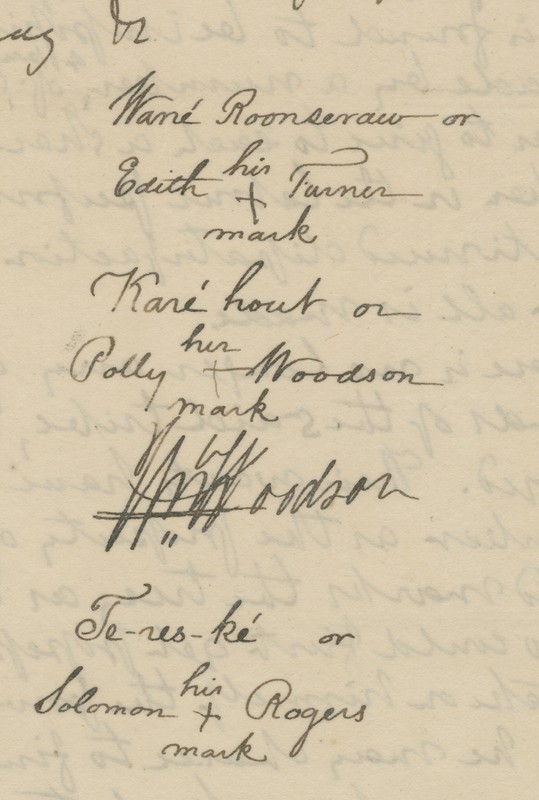 Wané Roonseraw or
his
Edith + Turner
mark
Karé hout or
her
Polly + Woodson
mark
Wm Woodson
Te-res-ké or
his
Solomon + Rogers
mark